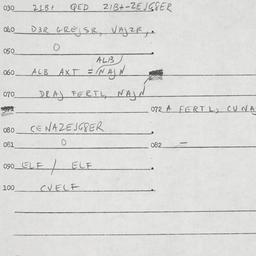 030 21B1 QED 21B1-ZEJGBER
040 D3R GREJSR, VAJZR,
050 0
ALB
060 ALB AXT = NAJN
070 DRAJ FERTL, NAJN
072 A FERTL, CUNA
080 CENAZEJGBER
081 0 082 -
090 ELF / ELF
100 CVELF